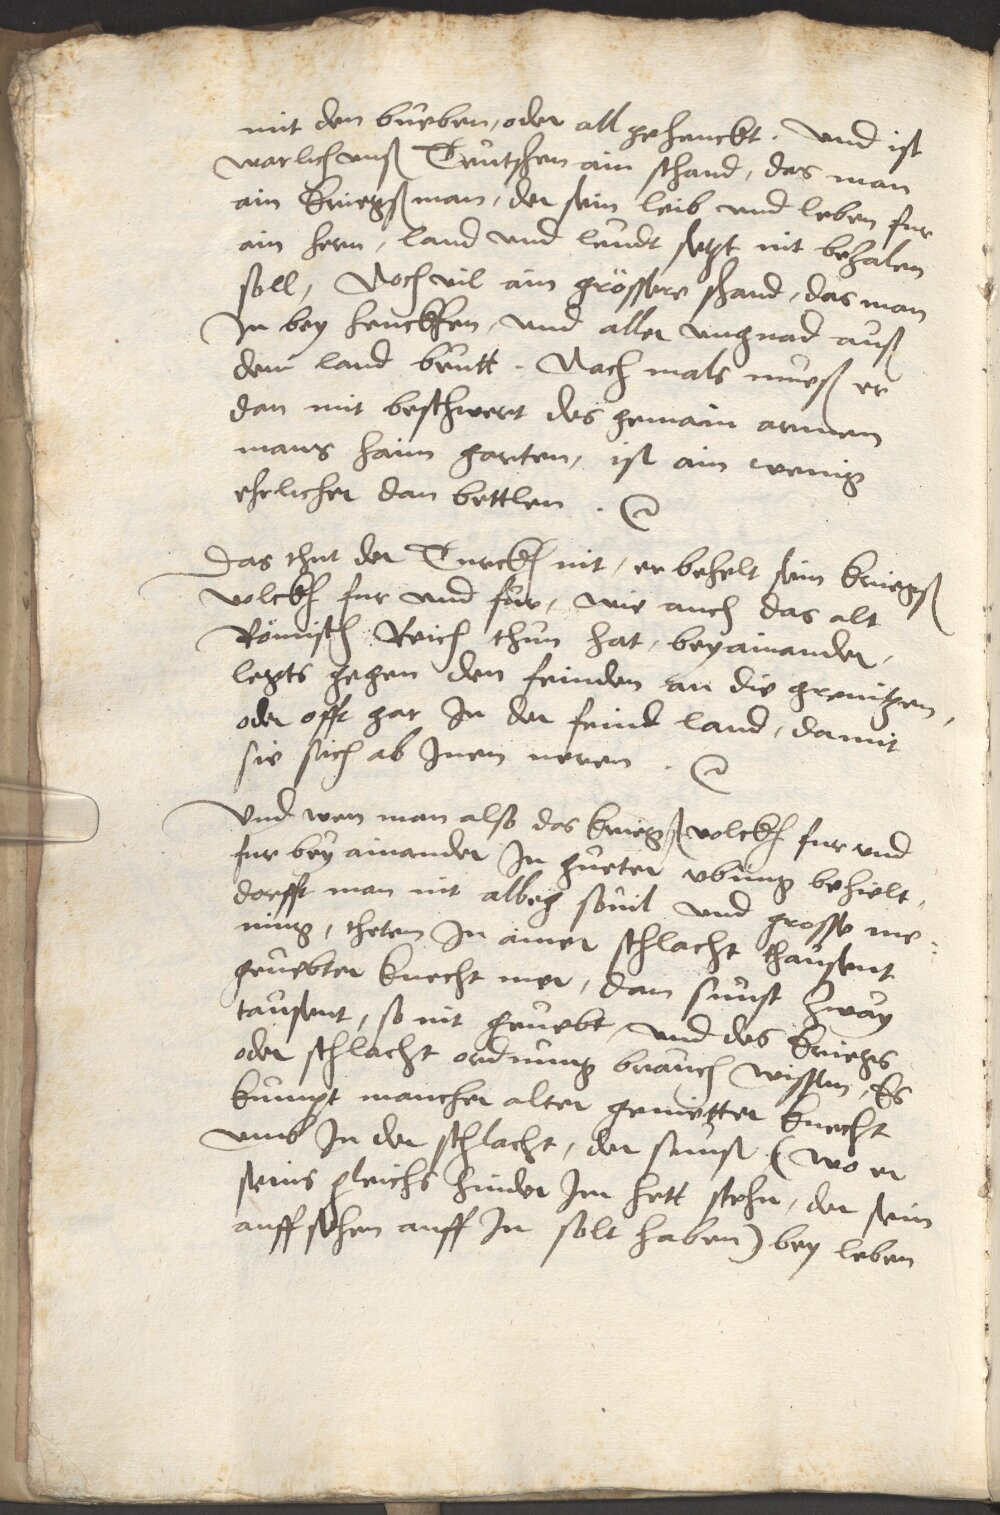 mit den bueben, oder all gehenckt. Und ist
warlich unß Teutschen ain schand, das man
ain kriegßman, der sein leib und leben fur
ain hern, land und leudt setzt nit behalen
soll, Noch vil ain grössere schand, das man
In bey henckhen, und aller ungnad auß
dem land beutt. Nach mals mueß er
dan mit beschwert des gemain armen
mans haim garten, ist ain wenig
ehrlicher dan bettlen.
Das thut der Turckh nit, er behelt sein kriegß
volckh fur und fur, wie auch das alt
Römisch Reich thun hat, beyainander,
legts gegen den feinden an die grenitzen,
oder offt gar In der feind land, damit
sie sich ab Inen neren.
Und wen man also das kriegßvolckh fur und
fur bey ainander In gueter ubung behielt,
dorfft man nit albeg souil und grosse me:
nung, theten In ainer schlacht thausent
geuebter knecht mer, dan sunst zway
tausent, so nit geuebt, und des kriegs
oder schlacht ordnung brauch wissen, Es
kumpt mancher alter genietter knecht
umb In der schlacht, der sunst (wo er
seins gleichs hinder Im hett stehn, der sein
auff sehen auff In solt haben) bey leben